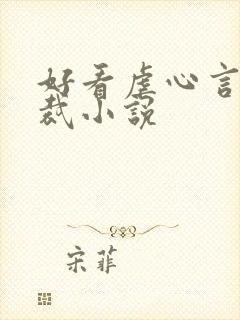 好看虐心言
裁小说
宋菲